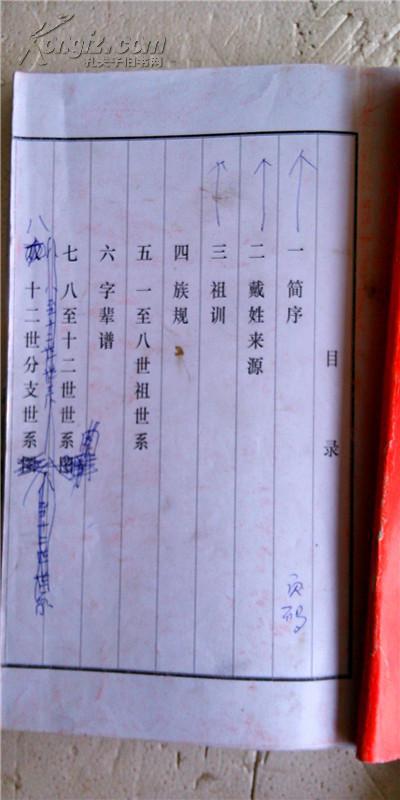 Kongfz.com
孔夫子旧书网
目录
一 简序
二 戴姓来源
三 祖训
四 族规
五 一至八世祖世系
六 字辈谱
七 八至十二世世系
八 十二世分支世系
页码